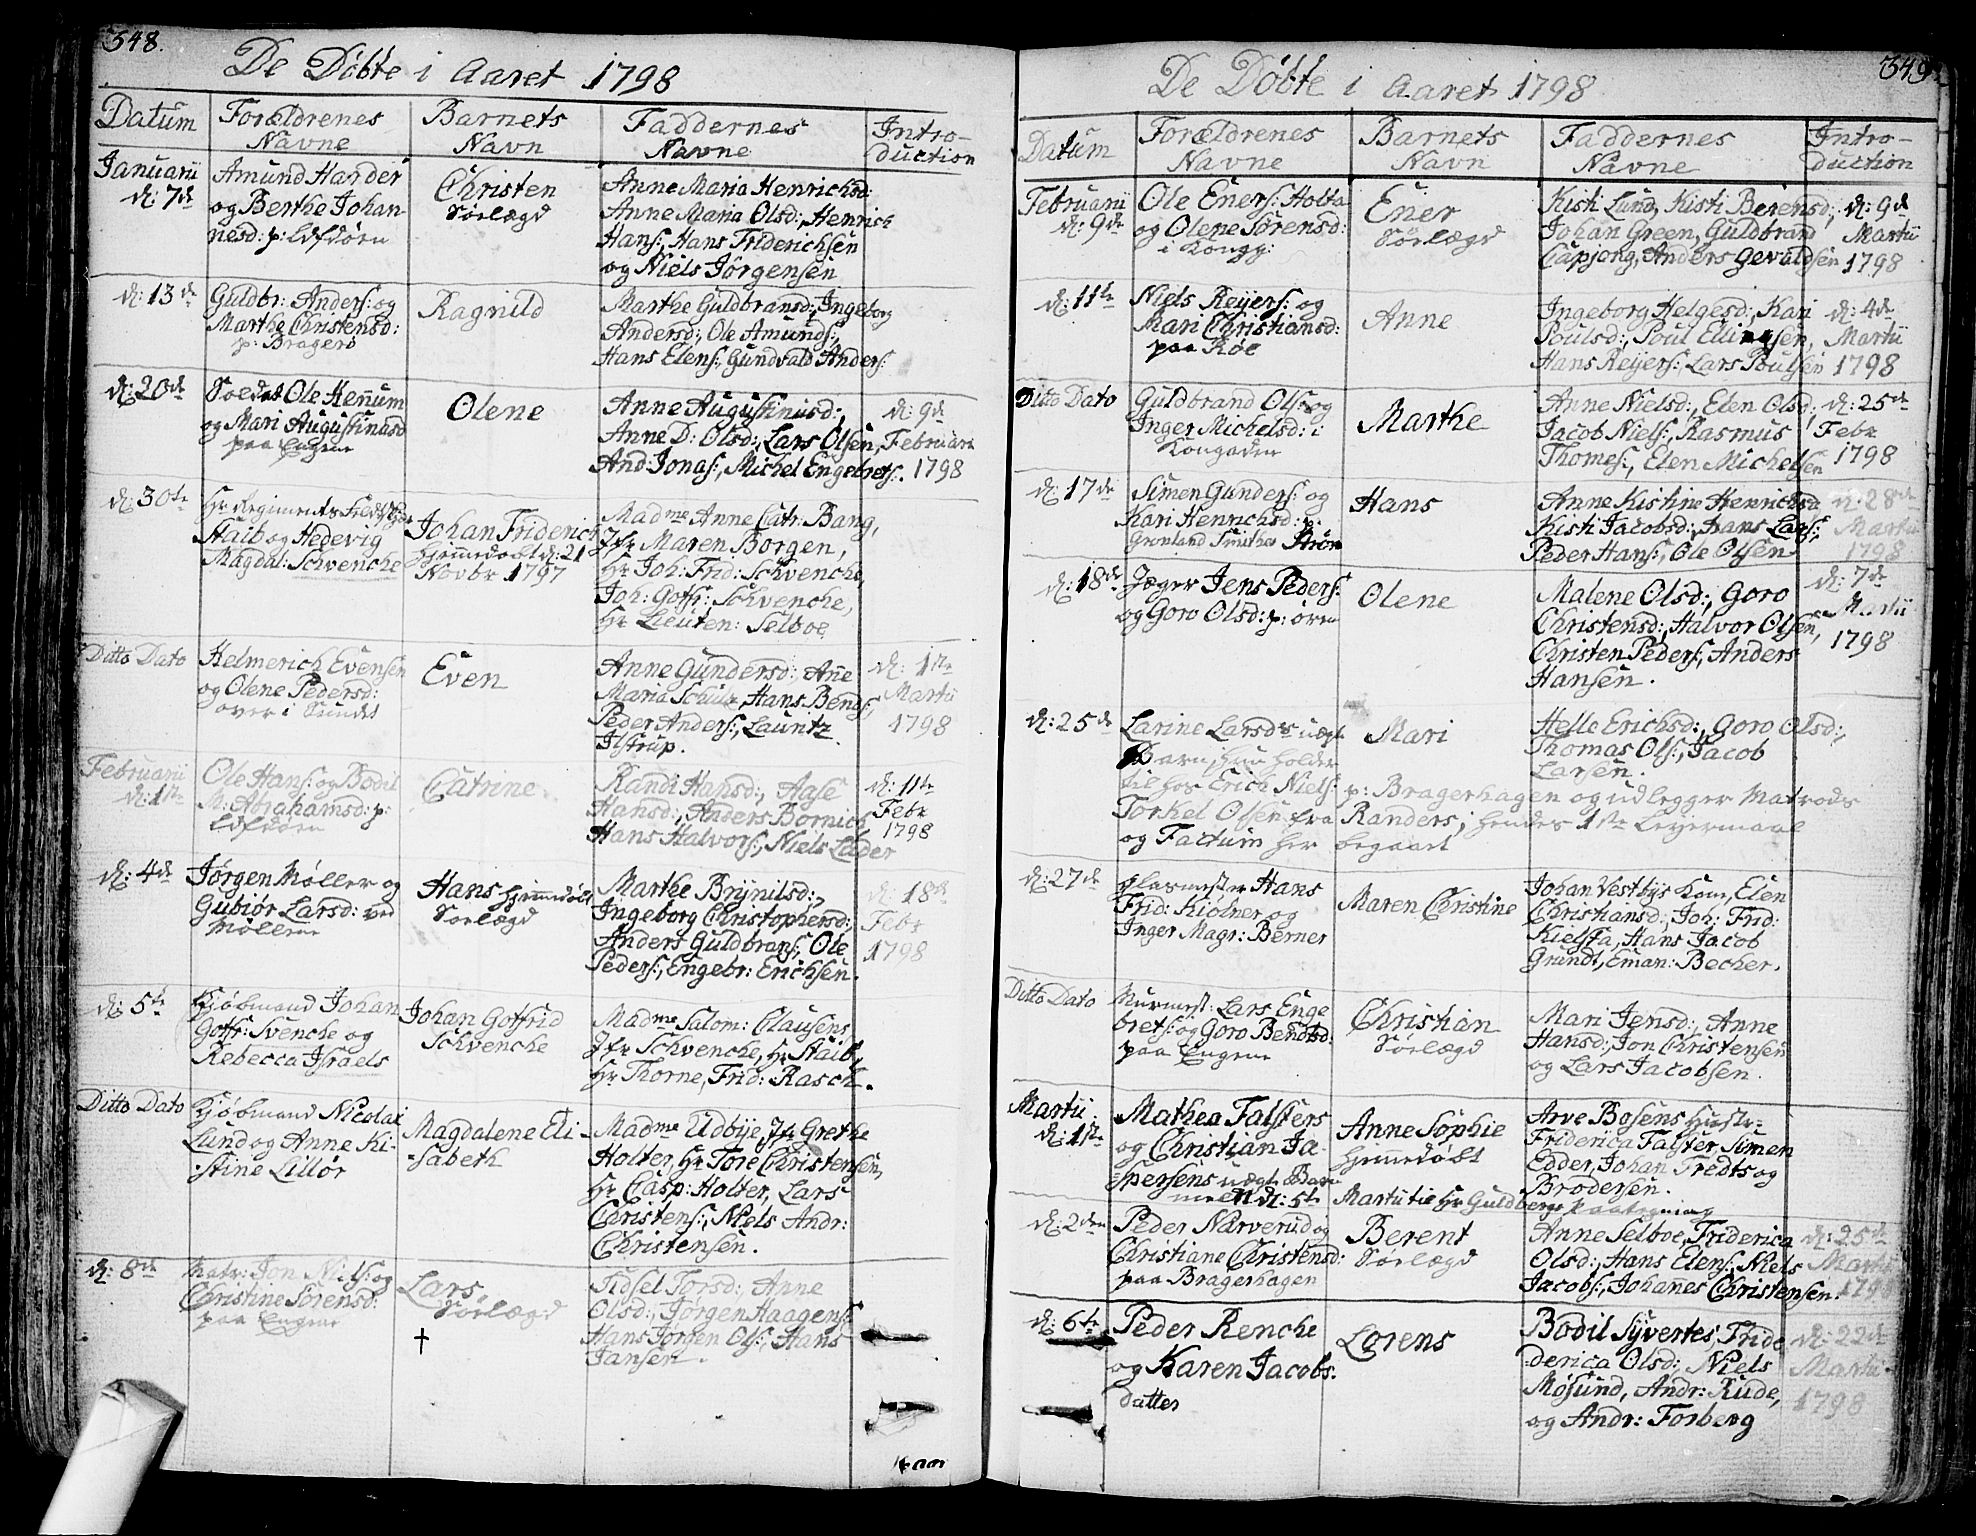 348.
De Döbte i Aaret 1798
Datum
Forældrenes
Navne
Barnets
Navn
Faddernes
Navne
Intro-
duction
Januarii
d: 7de
Amund Harder
og Berthe Johan-
nesd: p:
Christen
Anne Maria Henrichsd:
Anne Maria Olsd:, Henrich
Hans:, Hans Friderichsen
og Niels Jörgensen
d: 13de
Guldbr: Anders: og
Marthe Christensd:
p: Bragerö
Ragnild
Marthe Guldbransd:, Ingeborg
Andersd:, Ole Amunds:,
Hans Elens:, Gundvald Anders:
d: 20de
Ole Hennum
og Mari Augustinusd
paa Engene
Olene
Anne Augustinusd:,
Anne D: Olsd:, Lars Olsen,
And: Jonas:, Michel Engebrets:.
d: 9de
Februarii
1798
d: 30te
Hr Regiments
Staib og Hedevig
Magdal: Schvenche
Johan Friderich
hjemmedøbt d: 21
Novbr 1797
Madme Anne Catr: Bang,
Jfr Maren Borgen,
Hr Joh: Frid: Schvenche,
Joh: Gotfr: Schvenche,
Hr Lieuten: Selboe
Ditto Dato
Helmerich Evensen
og Olene Pedersd:
over i Sundet
Even
Anne Gundersd:, Anne
Maria Schulz, Hans Bends:,
Peder Anders:, Launtz
Ilstrup.
d: 1ste
Martii
1798
Februarii
d: 1ste
Ole Hans: og Bodil
M: Abrahamsd: p:
Catrine
Randi Hansd:, Aase
Hansd:, Anders Bornich
Hans Halvors:, Niels Lader
d: 11te
Febr
1798
d: 4de
Jörgen Møller og
Gubiör Larsd: ved
Møllene
Hans hjemmedøbt
Marthe Brijnilsd:,
Ingeborg Christophersd:
Anders Guldbrans:, Ole
Peders:, Engebr: Erichsen.
d: 18de
Febr
1798
d: 5te
Kjöbmand Johan
Gotfr: Svenche og
Rebecca Israels
Johan Gotfrid
Schvenche
Madme Salom: Clausens
Jfr Schvenche, Hr Staib,
Hr Thorne, Frid: Rasch.
Ditto Dato
Kjöbmand Nicolai
Lund og Anne Ki-
stine Lillör
Magdalene Eli-
sabeth
Madme Udbije, Jfr Grethe
Holter, Hr Tore Christensen,
Hr Casp: Holter, Lars
Christens:, Niels Andr:
Christensen.
d: 8de
Matr: Jon Niels: og
Christine Sörensd:
paa Engene
Lars
†
Sidsel Torsd:, Anne
Olsd:, Jörgen Haagens:
Hans Jörgen Ols:, Hans
Jansen.
349
De Döbte i Aaret 1798
Datum
Forældrenes
Navne
Barnets
Navn
Faddernes
Navne
Intro-
duction
Februarii
d: 9de
Ole Eners: Holta
og Olene Sörensd:
i Kongg:
Ener
Kisti Lund, Kisti Berensd:,
Johan Green, Guldbrand
Capjong, Anders Gevaldsen
d: 9de
Martii
1798
d: 11te
Niels Reijers: og
Mari Christiansd:
paa Röe
Anne
Ingeborg Helgesd:, Kari
Poulsd:, Poul Ellingsen,
Hans Reijers:, Lars Poulsen
d: 4de
Martii
1798
Ditto Dato
Guldbrand Ols: og
Inger Michelsd: i
Kongaden
Marthe
Anne Nielsd:, Elen Olsd:,
Jacob Niels:, Rasmus
Thomes:, Elen Michelsen
d: 25de
Febr
1798
d: 17de
Simen Gunders: og
Kari Henrichsd: p:
Grönland
Hans
Anne Kistine Henrichsd
Kisti Jacobsd:, Hans Lars:,
Peder Hans:, Ole Olsen
d: 28de
Martii
1798
d: 18de
Jæger Jens Peders:
og Goro Olsd: p: ören
Olene
Malene Olsd:, Goro
Christensd:, Halvor Olsen,
Christen Peders:, Anders
Hansen.
d: 7de
Martii
1798
d: 25de
Larine Larsd:s uægte
Barn, hun holder
til hos Erich Niels: p: Bragerhagen og udlegger Matrods
Torkel Olsen fra Randers; hendes 1ste Leyermaal
og Factum her begaaet
Mari
Helle Erichsd:, Goro Olsd:,
Thomas Ols:, Jacob
Larsen.
d: 27de
Glasmester Hans
Frid: Kiölner og
Inger Magr: Berner
Maren Christine
Johan Vestbijs Kone, Elen
Christiansd:, Joh: Frid:
Kielsta, Hans Jacob
Grundt, Eman: Becher.
Ditto Dato
Murmest: Lars Enge
brets: og Goro Bendtsd:
paa Engene
Christian
Mari Jensd:, Anne
Hansd:, Jon Christensen
og Lars Jacobsen.
Martii
d: 1ste
Mathea Falsters
og Christian Ja-
spersens uægte Barn
Anne Sophie
hjemmedöbt
d: 5te Martii til Hr Guldbergs paategning
Arve Bosens Hustr:
Friderica Falster, Simen
Edder, Johan Tredts og
Brodersen.
d: 2den
Peder Narverud og
Christiane Christensd:
paa Bragerhagen
Berent
Anne Selboe, Friderica
Olsd:, Hans Elens:, Niels
Jacobs:, Johanes Christensen.
d: 25de
Martii
1798
d: 6te
Peder Renche
og Karen Jacobs.
datter
Lorens
Bodil Sijvertes, Fride
derica Olsd:, Niels
Mosund, Andr: Rude,
og Andr: Forberg
d: 22de
Martii
1798